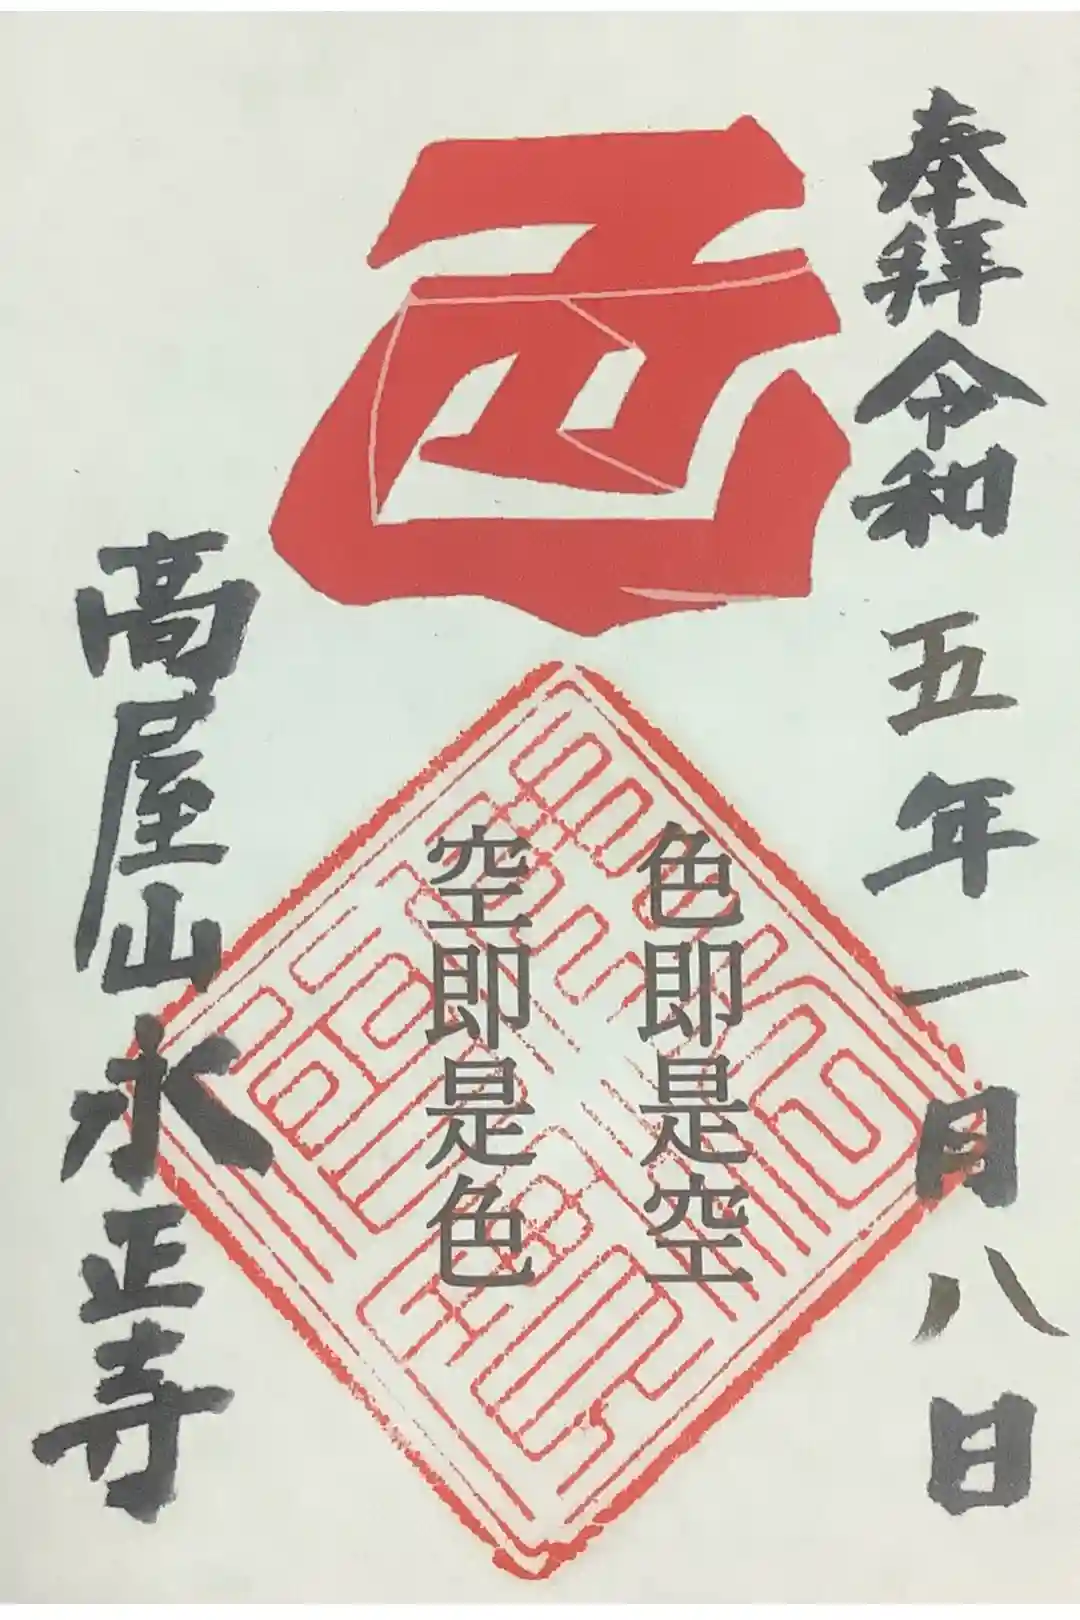 奉拜令和五年一月八日
色即是空
空即是色
高屋山永正寺